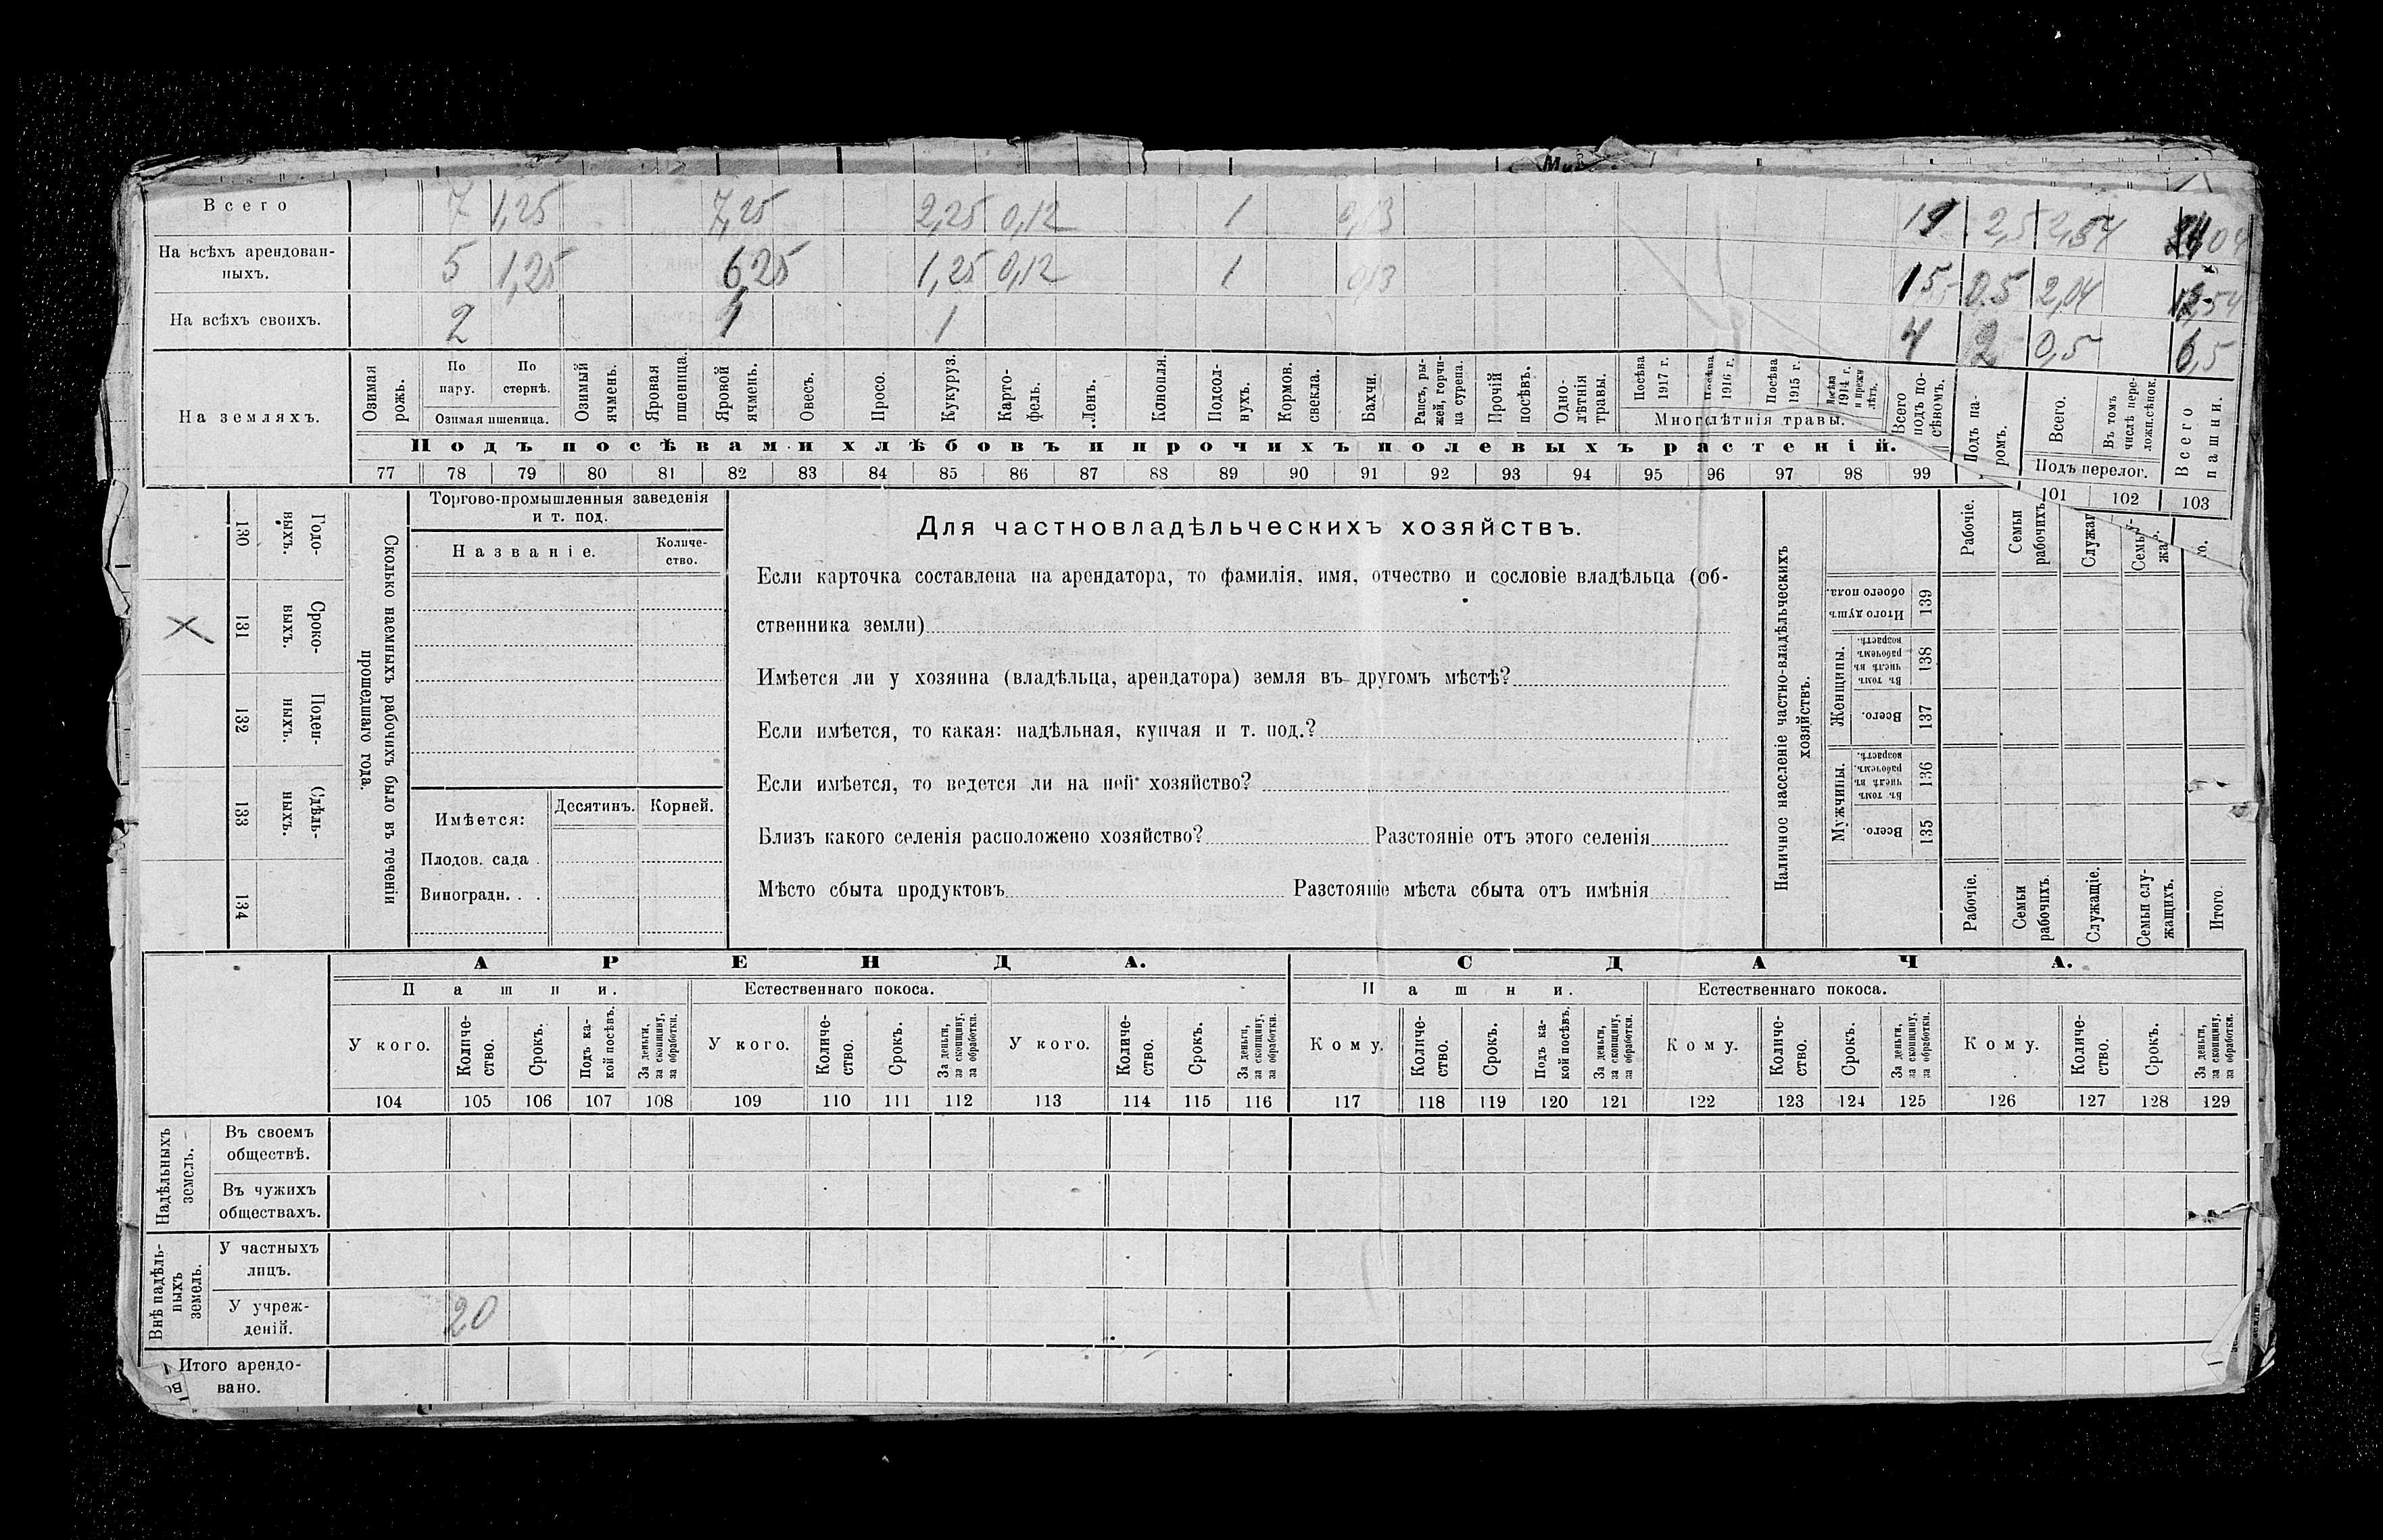 Всего 7 1,25 7,25 2,25 0,12 1 0,13 19 2,5 2,54
На всѣхъ арендован-
ныхъ. 5 1,25 6,25 1,25 0,12 1 0,13 15 0,5 2,04
На всѣхъ своихъ. 2 1 1 4 2 0,5 6,5
На земляхъ.
Озимая рожь.
По пару.
По стернѣ.
Озимая пшеница.
Озимый ячмень.
Яровая пшеница.
Яровой ячмень.
Овесъ.
Просо.
Кукуруз.
Карто-
фель.
Ленъ.
Конопля.
Подсол-
нухъ.
Кормов.
свекла.
Бахчи.
Рапсъ, ры-
жей, горчи-
ца сурепа.
Прочій
посѣвъ.
Одно-
лѣтнія
травы.
Посѣва
1917 г.
Посѣва
1916 г.
Посѣва
1915 г.
Посѣва
1914 г.
и прежн
лѣтъ.
Многолѣтнія травы.
Всего
подъ по-
сѣвомъ.
Подъ па-
ромъ.
Всего.
Въ томъ
числѣ пере-
ложн.сѣнок.
Подъ перелог.
Всего
пашни.
Подъ посѣвами хлѣбовъ и прочихъ полевыхъ растеній.
77 78 79 80 81 82 83 84 85 86 87 88 89 90 91 92 93 94 95 96 97 98 99 101 102 103
130 Годо-
выхъ.
131 Сроко-
выхъ.
132 Поден-
ныхъ.
133 Сдѣль-
ныхъ.
134
Сколько наемныхъ рабочихъ было въ теченіи
прошедшаго года.
Торгово-промышленныя заведенія
и т. под.
Названіе.
Количе-
ство.
Имѣется:
Десятинъ.
Корней.
Плодов. сада .
Виноградн. . .
Для частновладѣльческихъ хозяйствъ.
Если карточка составлена на арендатора, то фамилія, имя, отчество и сословіе владѣльца (об-
ственника земли)
Имѣется ли у хозяина (владѣльца, арендатора) земля въ другомъ мѣстѣ?
Если имѣется, то какая: надѣльная, купчая и т. под.?
Если имѣется, то ведется ли на ней хозяйство?
Близъ какого селенія расположено хозяйство? Разстояніе отъ этого селенія
Мѣсто сбыта продуктовъ Разстояніе мѣста сбыта отъ имѣнія
Наличное населеніе частно-владѣльческихъ
хозяйствъ.
Рабочіе.
Семьи
рабочихъ.
Итого душъ
обоего пола.
139
Женщины.
Въ томъ
числѣ въ
рабочемъ
возрастѣ.
138
Всего.
137
Мужчины.
Въ томъ
числѣ въ
рабочемъ
возрастѣ.
136
Всего.
135
Рабочіе.
Семьи
рабочихъ.
Служащіе.
Семьи слу-
жащихъ.
Итого.
АРЕНДА.
СДАЧА.
Пашни.
Естественнаго покоса.
Пашни.
Естественнаго покоса.
У кого.
Количе-
ство.
Срокъ.
Подъ ка-
кой посѣвъ.
За деньги,
за скопщину,
за обработки.
У кого.
Количе-
ство.
Срокъ.
За деньги,
за скопщину,
за обработки.
У кого.
Количе-
ство.
Срокъ.
За деньги,
за скопщину,
за обработки.
Кому.
Количе-
ство.
Срокъ.
Подъ ка-
кой посѣвъ.
За деньги,
за скопщину,
за обработки.
Кому.
Количе-
ство.
Срокъ.
За деньги,
за скопщину,
за обработки.
Кому.
Количе-
ство.
Срокъ.
За деньги,
за скопщину,
за обработки.
104 105 106 107 108 109 110 111 112 113 114 115 116 117 118 119 120 121 122 123 124 125 126 127 128 129
Надѣльныхъ
земель.
Въ своемъ
обществѣ.
Въ чужихъ
обществахъ.
Внѣ надѣль-
ныхъ
земель.
У частныхъ
лицъ.
У учреж-
деній. 20
Итого арендо-
вано.